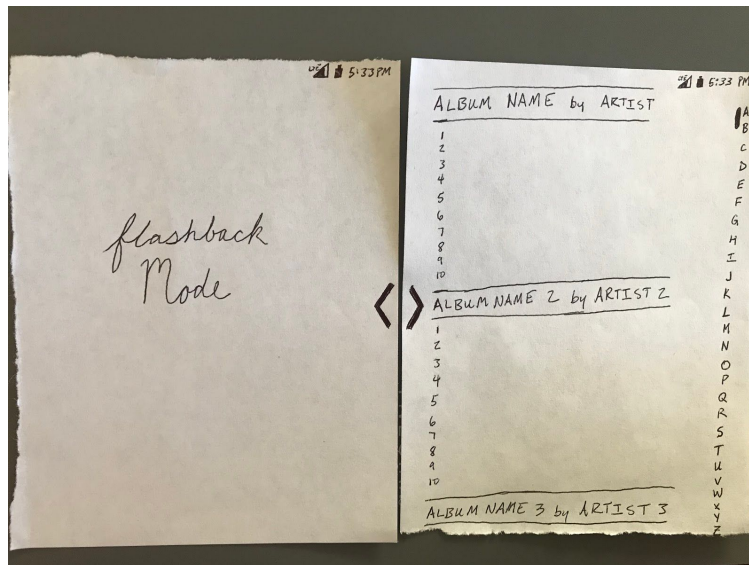 LTE 5:33 PM
flashback
Mode
< >
LTE 5:33 PM
ALBUM NAME by ARTIST
1
2
3
4
5
6
7
8
9
10
ALBUM NAME 2 by ARTIST 2
1
2
3
4
5
6
7
8
9
10
ALBUM NAME 3 by ARTIST 3
A
B
C
D
E
F
G
H
I
J
K
L
M
N
O
P
Q
R
S
T
U
V
W
X
Y
Z